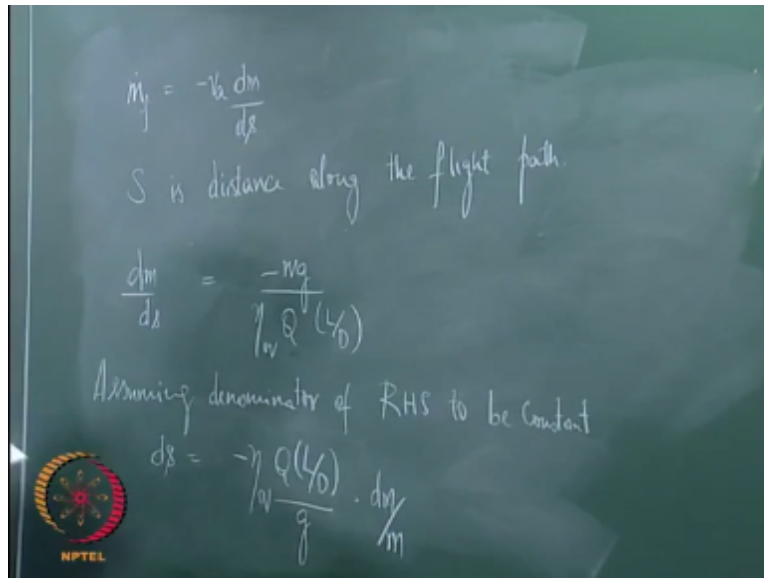 ṁ_f = -Va dm/ds
S is distance along the flight path.
dm/ds = -mg / η_ov Q (L/D)
Assuming denominator of RHS to be constant
ds = -η_ov Q(L/D) / g . dm/m
NPTEL